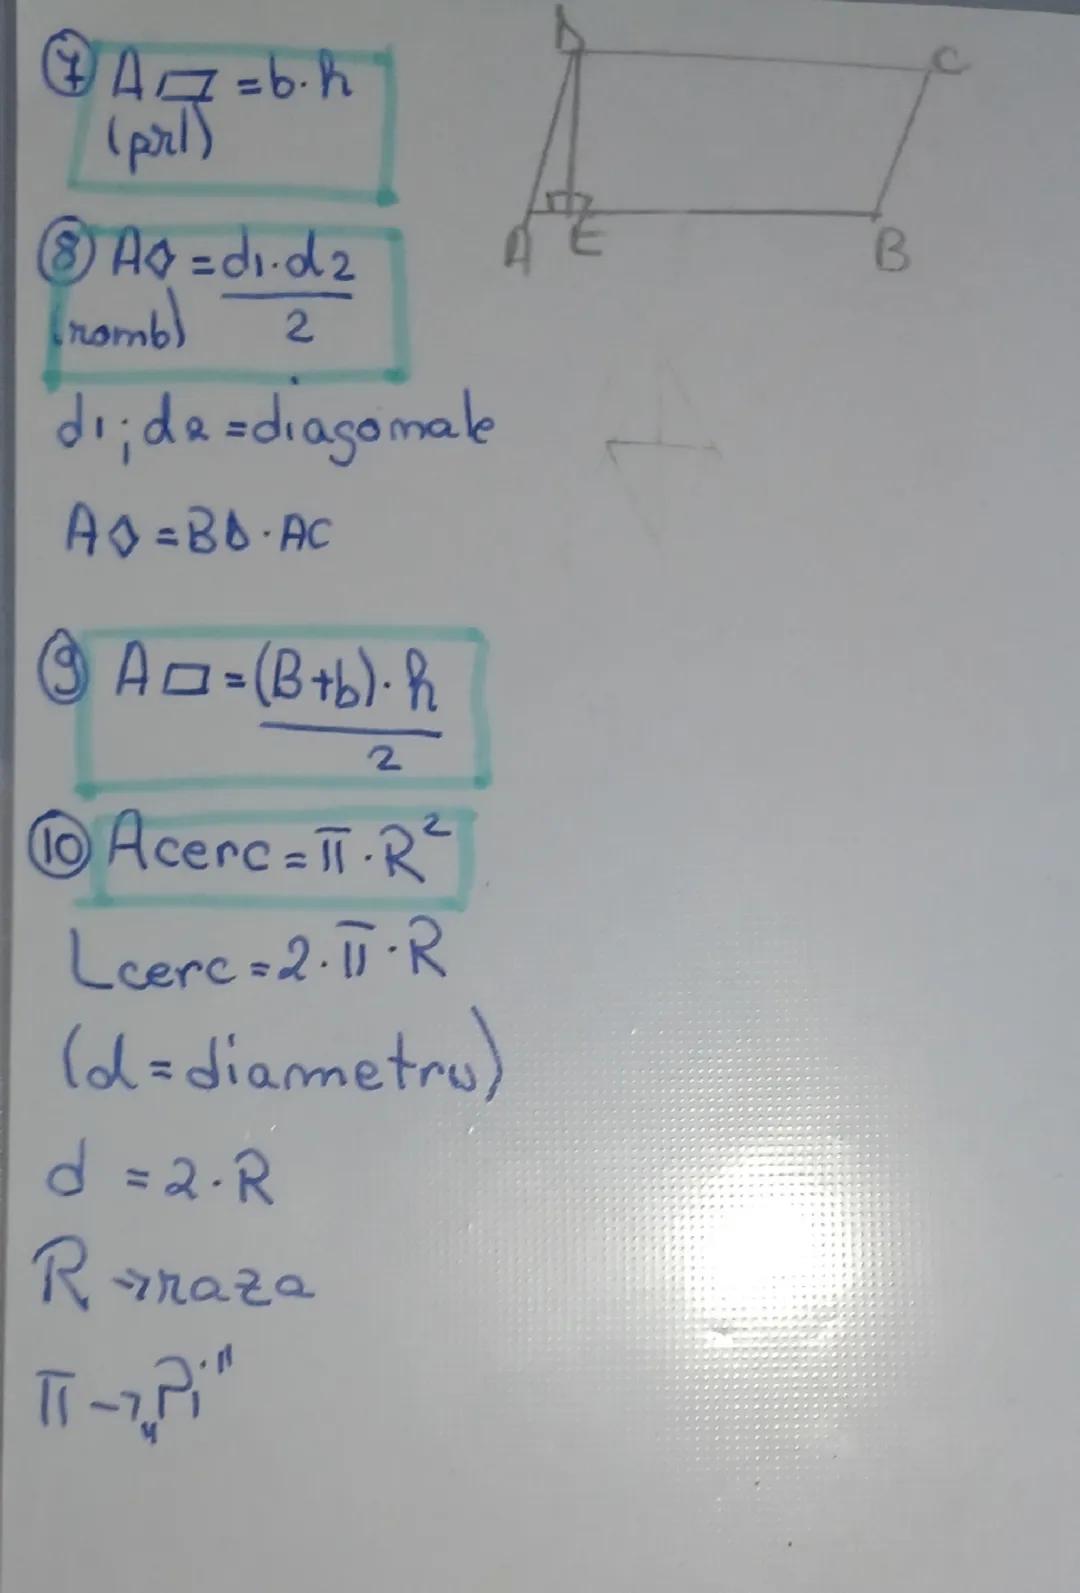 7 A▱ = b·h
(prl)
8 A◇ = d1·d2
2
(romb)
d1; d2 = diagonale
A◇ = BD·AC
9 A▱ = (B+b)·h
2
10 Acerc = π·R²
Lcerc = 2·π·R
(d = diametru)
d = 2·R
R → raza
π → „Pi"
D
C
A
E
B